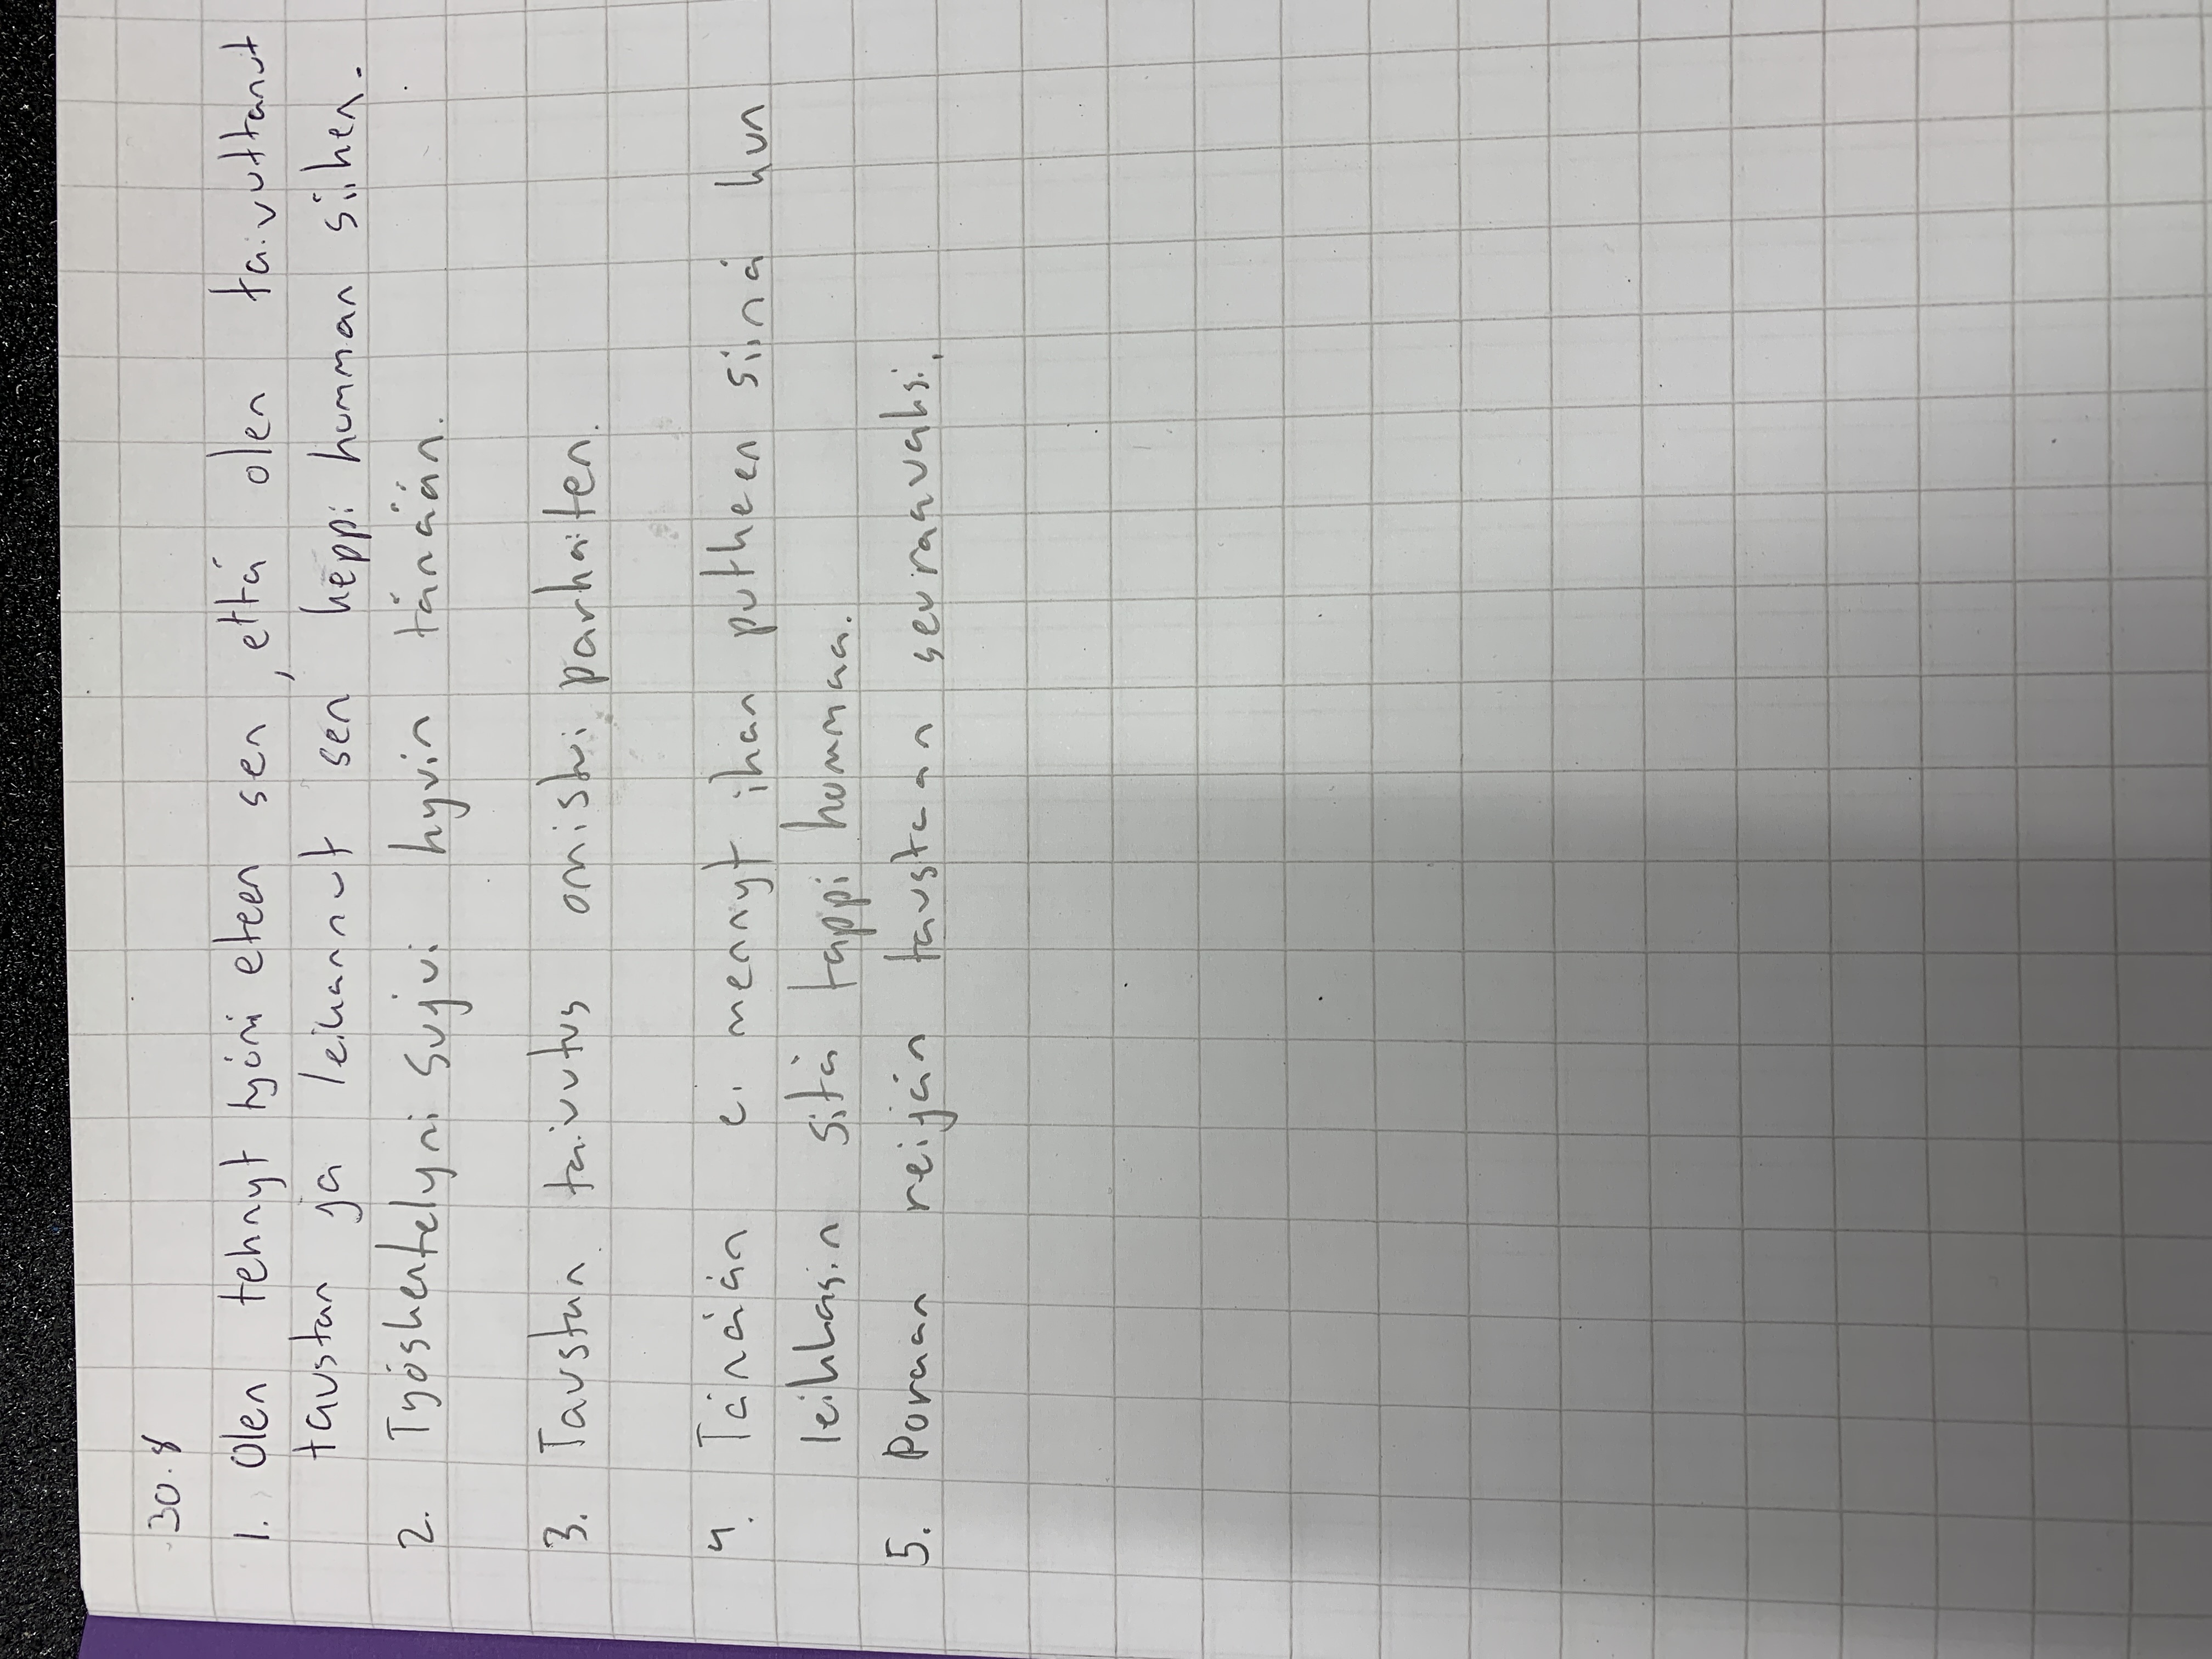 30.8
1. Olen tehnyt työni eteen sen, että olen taivuttanut
taustan ja leikannut sen keppi homman siihen.
2. Työskentelyni sujui hyvin tänään.
3. Taustan taivutus onnistui parhaiten.
4. Tänään ei mennyt ihan putkeen siinä kun
leikkasin sitä tappi hommaa.
5. Poraan reijän taustaan seuraavaksi.